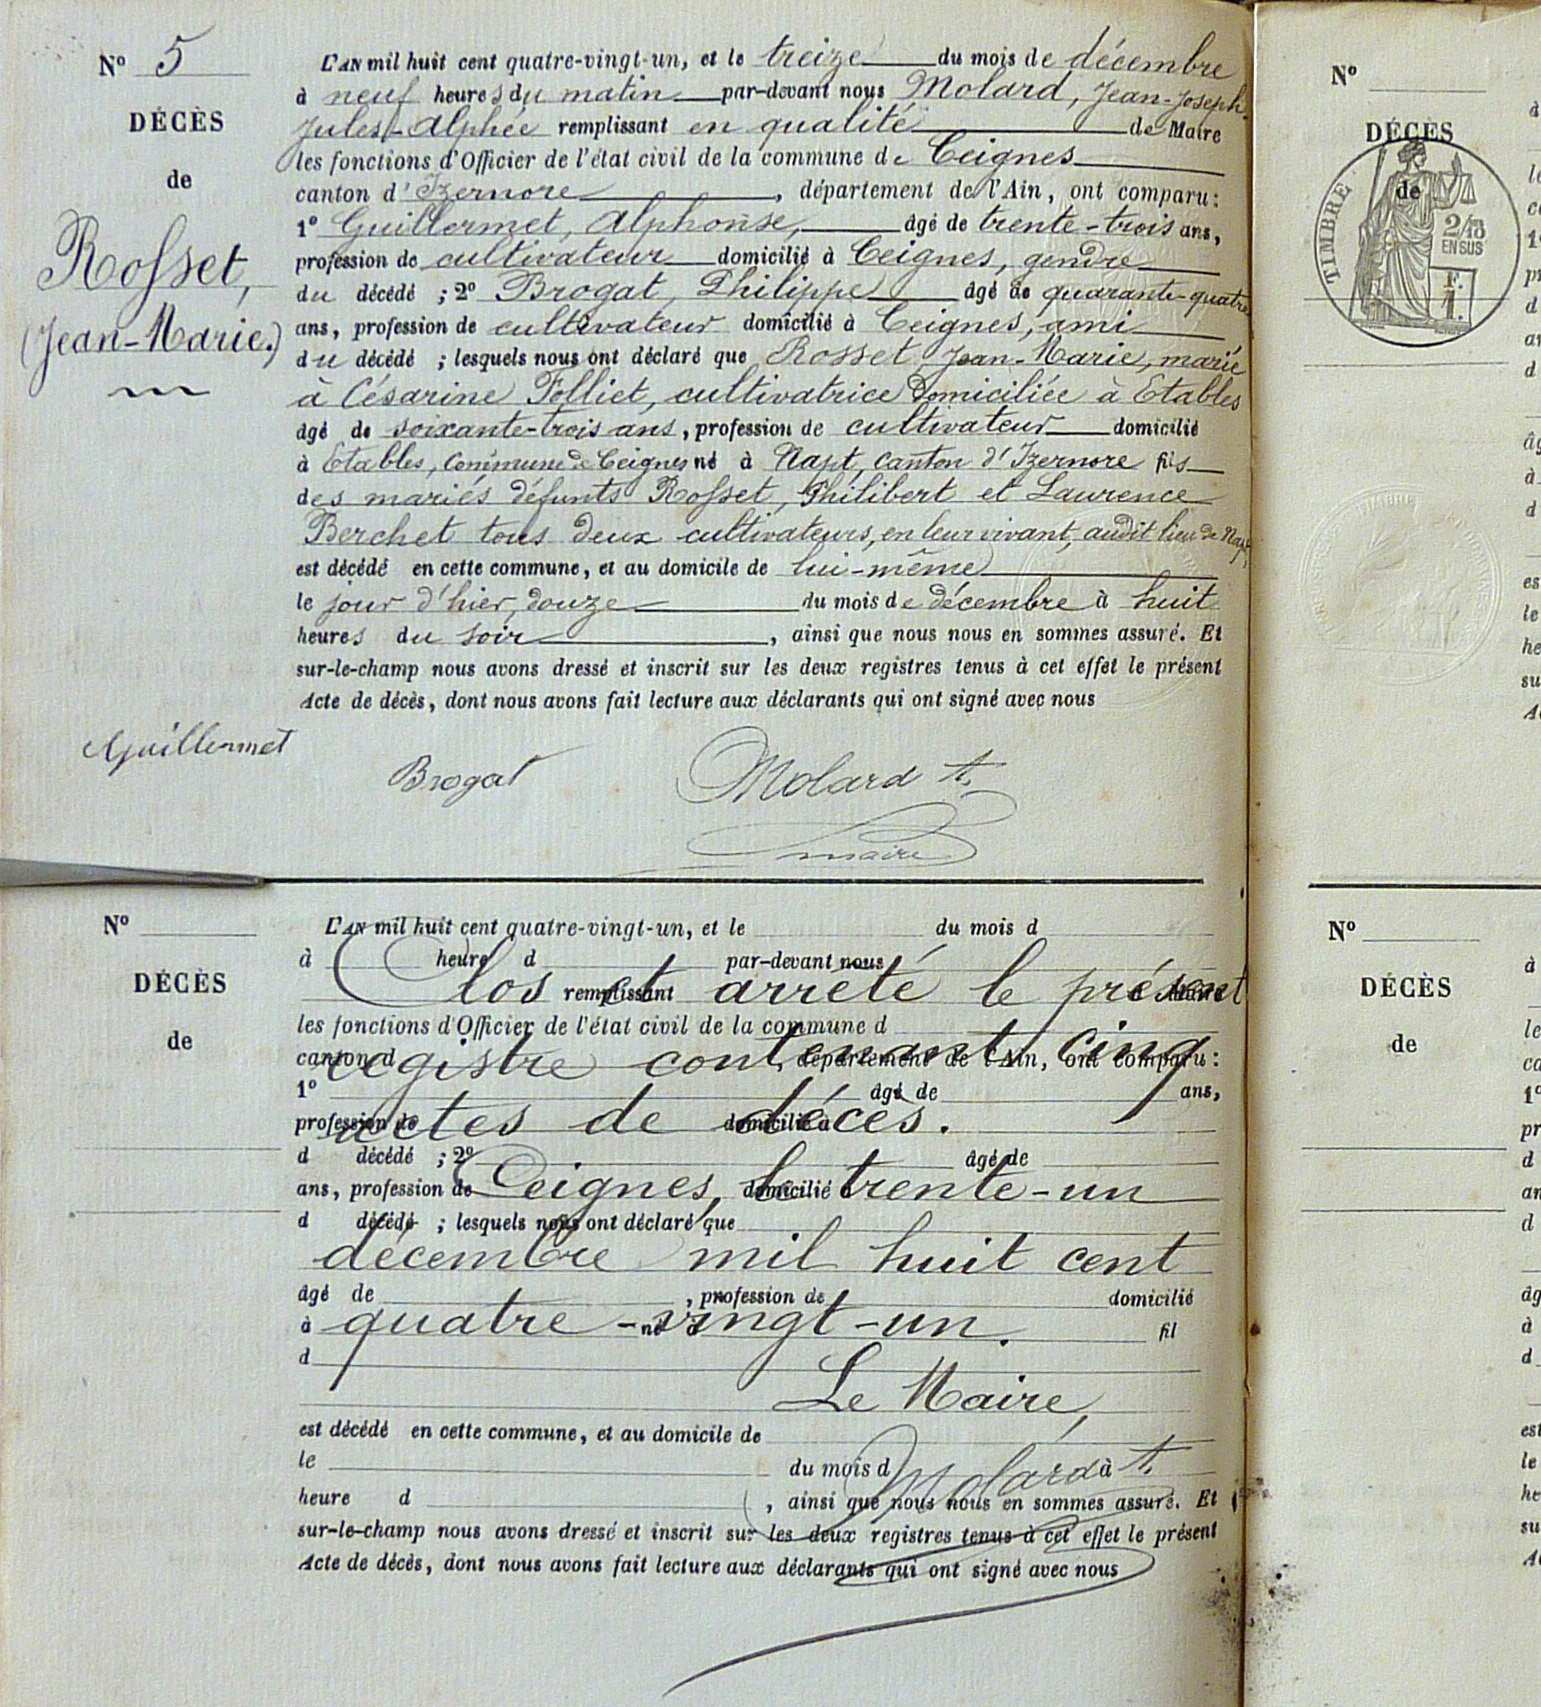 N° 5
DÉCÈS
de
Rosset,
(Jean-Marie.)
L'AN mil huit cent quatre-vingt-un, et le treize du mois de décembre
à neuf heures du matin par-devant nous Molard, Jean-Joseph-
Jules-Alphée remplissant en qualité de Maire
les fonctions d'Officier de l'état civil de la commune de Ceignes
canton d'Izernore, département de l'Ain, ont comparu:
1° Guillermet, Alphonse, âgé de trente-trois ans,
profession de cultivateur domicilié à Ceignes, gendre
du décédé ; 2° Brogat, Philippe âgé de quarante-quatre
ans, profession de cultivateur domicilié à Ceignes, ami
du décédé ; lesquels nous ont déclaré que Rosset, Jean-Marie, marié
à Césarine Folliet, cultivatrice domiciliée à Etables
âgé de soixante-trois ans, profession de cultivateur domicilié
à Etables, Commune de Ceignes né à Napt, canton d'Izernore fils
des mariés défunts Rosset, Philibert et Laurence
Berchet tous deux cultivateurs, en leur vivant, audit lieu de Napt,
est décédé en cette commune, et au domicile de lui-même
le jour d'hier, douze du mois de décembre à huit
heures du soir, ainsi que nous nous en sommes assuré. Et
sur-le-champ nous avons dressé et inscrit sur les deux registres tenus à cet effet le présent
Acte de décès, dont nous avons fait lecture aux déclarants qui ont signé avec nous
Guillermet
Brogat
Molard A.
maire
N°
DÉCÈS
de
L'AN mil huit cent quatre-vingt-un, et le du mois d
à heure d par-devant nous
Clos et arrêté le présent
remplissant de Maire
les fonctions d'Officier de l'état civil de la commune d
registre contenant cinq
canton d , département de l'Ain, ont comparu :
1° âgé de ans,
actes de décès.
profession de domicilié à
d décédé ; 2° âgé de
Ceignes, le trente-un
ans, profession de domicilié à
d décédé ; lesquels nous ont déclaré que
décembre mil huit cent
âgé de , profession de domicilié
quatre-vingt-un.
à né à fil
d
Le Maire,
est décédé en cette commune, et au domicile de
le du mois d à
Molard A.
heure d , ainsi que nous nous en sommes assuré. Et
sur-le-champ nous avons dressé et inscrit sur les deux registres tenus à cet effet le présent
Acte de décès, dont nous avons fait lecture aux déclarants qui ont signé avec nous
N°
DÉCÈS
de
TIMBRE
2/10
EN SUS
1 F.
N°
DÉCÈS
de